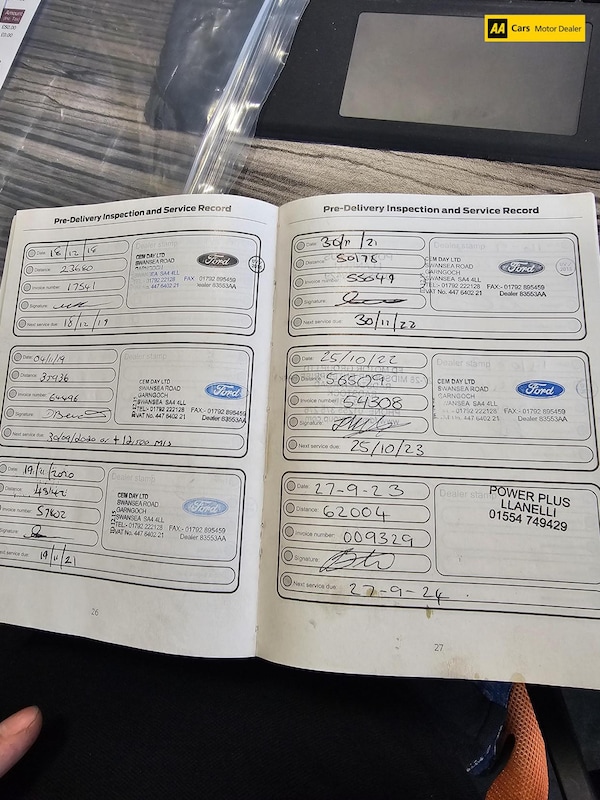 Amount
(Inc. Tax)
£50.00
£0.00
AA Cars Motor Dealer
Pre-Delivery Inspection and Service Record
Date: 18/12/18
Distance: 23660
Invoice number: 17541
Signature:
Next service due: 18/12/19
Dealer stamp
CEM DAY LTD
SWANSEA ROAD
GARNGOCH
SWANSEA SA4 4LL
TEL:- 01792 222128 FAX:- 01792 895459
VAT No. 447 6402 21 Dealer 83553AA
Ford
Date: 04/11/19
Distance: 37936
Invoice number: 64496
Signature:
Next service due: 30/09/2020 or + 12,500 MLS
Dealer stamp
CEM DAY LTD
SWANSEA ROAD
GARNGOCH
SWANSEA SA4 4LL
TEL:- 01792 222128 FAX:- 01792 895459
VAT No. 447 6402 21 Dealer 83553AA
Ford
Date: 19/11/2020
Distance:
Invoice number: 57602
Signature:
Next service due: 19/11/21
CEM DAY LTD
SWANSEA ROAD
GARNGOCH
SWANSEA SA4 4LL
TEL:- 01792 222128 FAX:- 01792 895459
VAT No. 447 6402 21 Dealer 83553AA
Ford
26
Pre-Delivery Inspection and Service Record
Date: 30/11/21
Distance: 50178
Invoice number: 55649
Signature:
Next service due: 30/11/22
Dealer stamp
CEM DAY LTD
SWANSEA ROAD
GARNGOCH
SWANSEA SA4 4LL
TEL:- 01792 222128 FAX:- 01792 895459
VAT No. 447 6402 21 Dealer 83553AA
Ford
Date: 25/10/22
Distance: 56509
Invoice number: 54308
Signature:
Next service due: 25/10/23
CEM DAY LTD
SWANSEA ROAD
GARNGOCH
SWANSEA SA4 4LL
TEL:- 01792 222128 FAX:- 01792 895459
VAT No. 447 6402 21 Dealer 83553AA
Ford
Date: 27-9-23
Distance: 62004
Invoice number: 009329
Signature:
Next service due: 27-9-24
Dealer stamp
POWER PLUS
LLANELLI
01554 749429
27